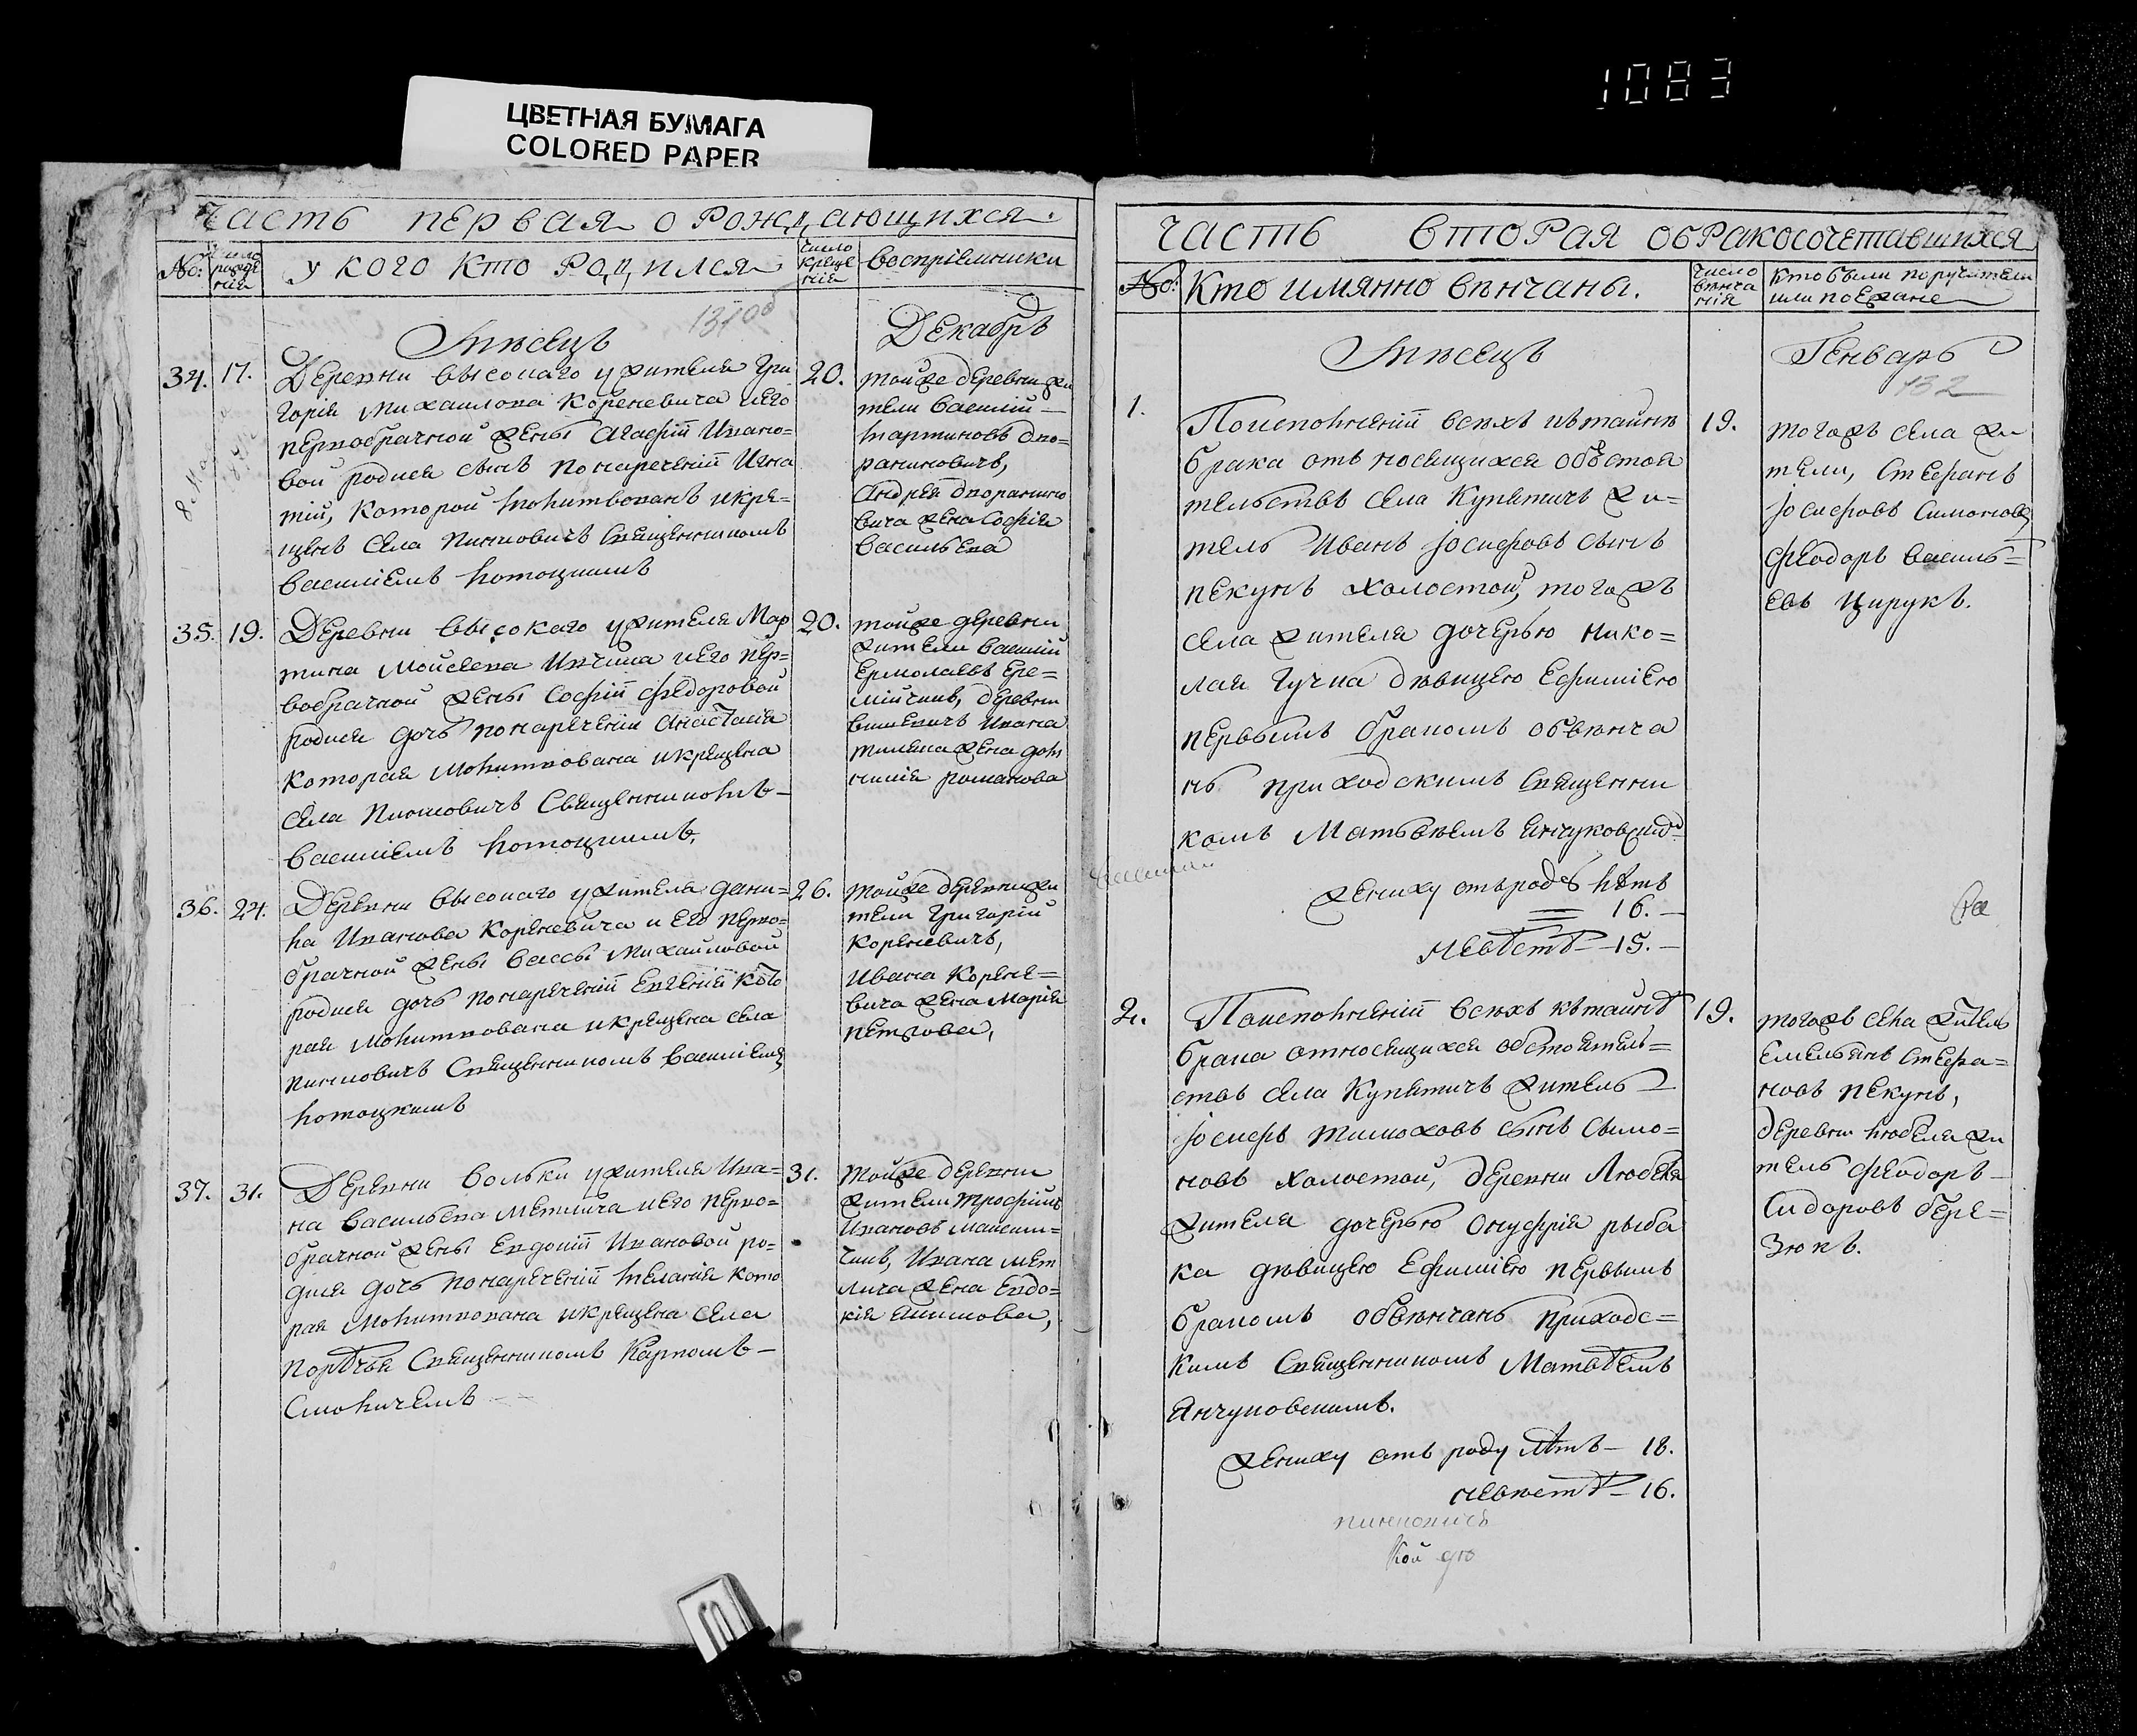 1083
ЦВЕТНАЯ БУМАГА
COLORED PAPER
Часть первая о Рождающихся.
№:
число рожде нія
у кого кто Родился
число креще нія
воспріемники
Мѣсецъ
Декабрь
34. 17.
Деревни высокаго у жителя Гри
горія Михаилова Кореневича и его
первобрачной жены Агафіи Ивано=
вой родися сынъ по нареченіи Игна
тій, которой молитвованъ и кре=
щенъ села Пинковичъ Священникомъ
Василіемъ Котоцкимъ
20.
тойже деревни жи
тели Василій
Мартиновъ Дво=
ранинович,
Андрея Дворанино
вича жена Софія
Васильева
35. 19.
Деревни высокаго у жителя Мар
тина Моисеева Ивчика и его пер=
вобрачной жены Софіи Федоровой
родися дочь по нареченіи Анастасія
которая молитвована и крещена
села Пинковичъ Священникомъ
Василіемъ Котоцкимъ,
20.
тойже деревни
жители Василій
Ермолаевъ Ере=
мійчикъ, деревни
Вишевичъ Ивана
жена дом
никія Романова
36. 24.
Деревни высокаго у жителя Дани=
ла Иванова Кореневича и его перво=
брачной жены Вассы Михайловой
родися дочь по нареченіи Евгенія кото
рая молитвована и крещена села
Пинковичъ Священникомъ Василіемъ
Котоцкимъ
26.
тойже деревни жи
тели Григорій
Кореневичъ,
Ивана Корене=
вича жена Марія
Петрова,
37. 31.
Деревни Вольки у жителя Ива=
на Васильева Метлича и его перво=
брачной жены Евдокіи Ивановой ро=
дися дочь по нареченіи Меланія кото
рая молитвована и крещена села
Порѣчья Священникомъ Карпомъ
Смоличемъ
31.
тойже деревни
жители Трофимъ
Ивановъ Максим=
чикъ, Ивана Мет
лича жена Евдо=
кія Якимова,
Часть вторая о бракосочетавшихся
№:
Кто имянно вѣнчаны.
число вѣнча нія
Кто были поручители
или поезжане
Мѣсецъ
Генварь
132
1.
По исполненіи всѣхъ къ тайнѣ
брака отъ носящихся обстоя
тельствъ села Купятичъ жи=
тель Иванъ Іосифовъ сынъ
Пекунъ холостой, тогожъ
села жителя дочерью Нико=
лая Гучка дѣвицею Ефиміею
первымъ бракомъ обвѣнча
нъ приходскимъ Священни
комъ Матвѣемъ Янчуковским
жениху отъ роду лѣтъ
16.
невѣстѣ 15.
19.
тогожъ села жи
тели, Стефанъ
Іосифовъ Симоновъ
Феодоръ Василь=
евъ Цирукъ.
2.
По исполненіи всѣхъ къ тайнѣ
брака относящихся обстоятель=
ствъ села Купятичъ житель
Іосифъ Тимоховъ сынъ Сымо=
новъ холостой, деревни Любеля
жителя дочерью Онуфрія Рыба
ка дѣвицею Ефиміею первымъ
бракомъ обвѣнчанъ приходс=
кимъ Священникомъ Матвѣемъ
Янчуковскимъ.
жениху отъ роду лѣтъ 18.
невѣстѣ 16.
19.
тогожъ села житель
Емельянъ Стефа=
новъ Пекунъ,
деревни Любеля жи
тель Феодоръ
Сидоровъ Бере=
зюкъ.